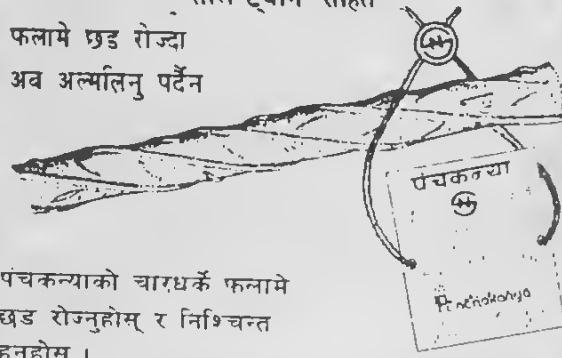 सहित
फलामे छड रोज्दा
अव अल्मलिनु पर्दैन
पंचकन्या
Panchakanya
पंचकन्याको चारधर्के फलामे
छड रोज्नुहोस् र निश्चिन्त
हुनुहोस् ।